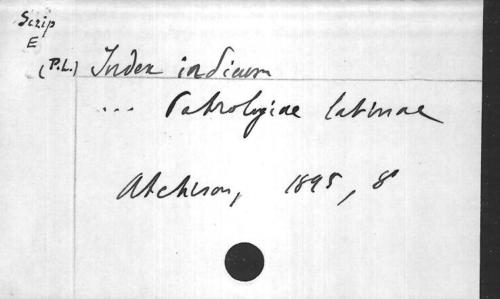 Scrip
E
(P.L.) Index indicum
... Patrologiae latinae
Atchison, 1895, 8°